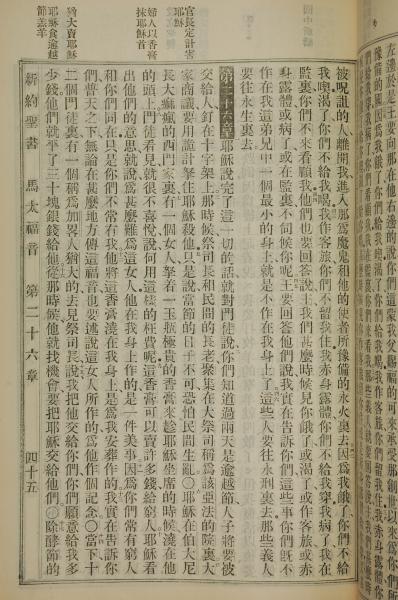 左邊於是王要向那在他右邊的說你們這蒙我父賜福的可來承受那創世以來爲你們所
官長定計害耶穌
婦人以香膏抹耶穌首
猶大賣耶穌
耶穌食逾越節羔羊
被呪詛的人離開我進入那爲魔鬼和他的使者所豫備的永火裏去因爲我餓了你們不給
我喫渴了你們不給我喝我作客旅你們不留我住我赤身露體你們不給我穿我病了我在
監裏你們不來看顧我他們也要回答說主我們甚麼時候見你餓了或渴了或作客旅或赤
身露體或病了或在監裏不伺候你呢王要回答他們說我實在告訴你們這些事你們旣不
作在我這弟兄中一個最小的身上就是不作在我身上了這些人要往永刑裏去那些義人
要往永生裏去
第二十六章 耶穌說完了這一切的話就對門徒說你們知道過兩天是逾越節人子將要被
交給人釘在十字架上那時候祭司長和民間的長老聚集在大祭司稱爲該亞法的院裏大
家商議要用詭計拏住耶穌殺他只是說當節的日子不可恐怕民間生亂〇耶穌在伯大尼
長大痲瘋的西門家裏有一個女人拏着一玉瓶極貴的香膏來趁耶穌坐席的時候澆在他
的頭上門徒看見就很不喜悅說何用這樣的枉費呢這香膏可以賣許多錢給窮人耶穌看
出他們的意思就說爲甚麼難爲這女人他在我身上作的是一件美事因爲你們常有窮人
和你們同在只是你們不常有我他將這香膏澆在我身上是爲我安葬作的我實在告訴你
們普天之下無論在甚麼地方傳這福音也要述說這女人所作的爲他作個記念〇當下十
二個門徒裏有一個稱爲加畧人猶大的去見祭司長說我把他交給你們你們願意給我多
少錢他們就平了三十塊銀錢給他從那時候他就找機會要把耶穌交給他們〇除酵節的
新約聖書 馬太福音 第二十六章 四十五